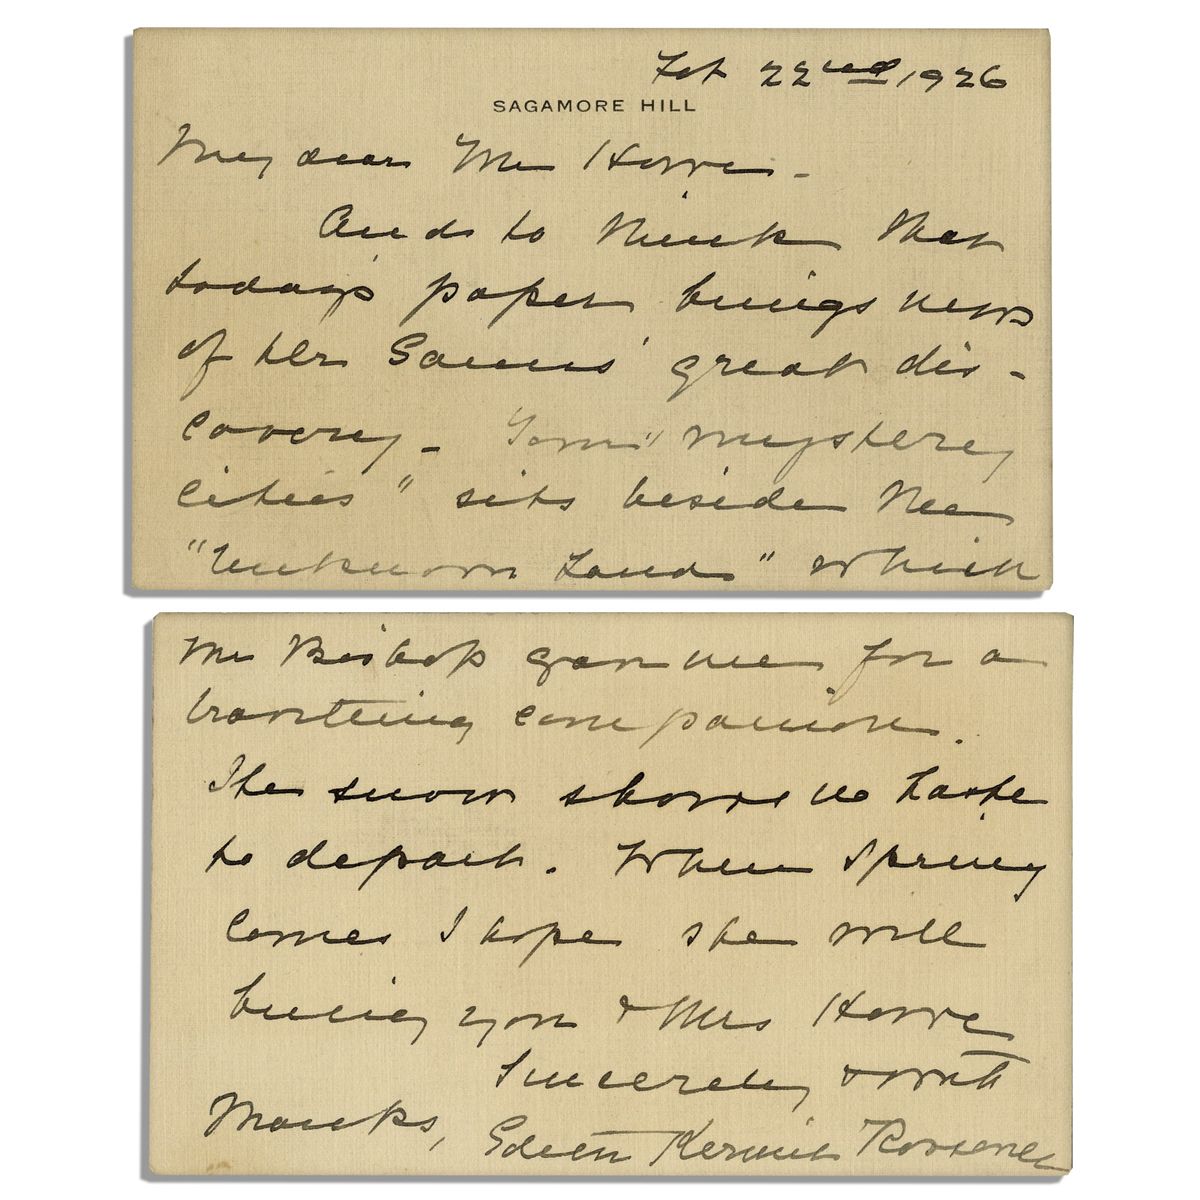 Feb 22nd, 1926
SAGAMORE HILL
My dear Mr Howe -
And to think that
today's paper brings news
of the Ganns' great dis-
covery - Your "mystery
cities" sits beside the
"Unknown Lands" which
Mr Bishop gave me for a
travelling companion.
The snow shows no haste
to depart. When Spring
comes I hope she will
bring you & Mrs Howe
Sincerely & with
thanks, Edith Kermit Roosevelt